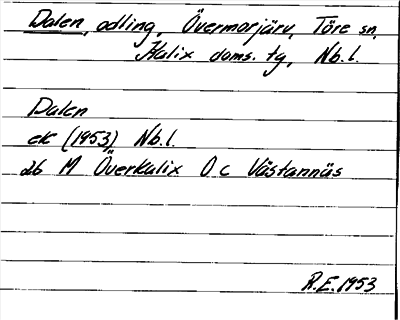 Dalen, odling, Övermorjärv, Töre sn,
Kalix doms. tg, Nb.l.
Dalen
ek (1953) Nb.l.
26 M Överkalix O c Västannäs
R.E. 1953